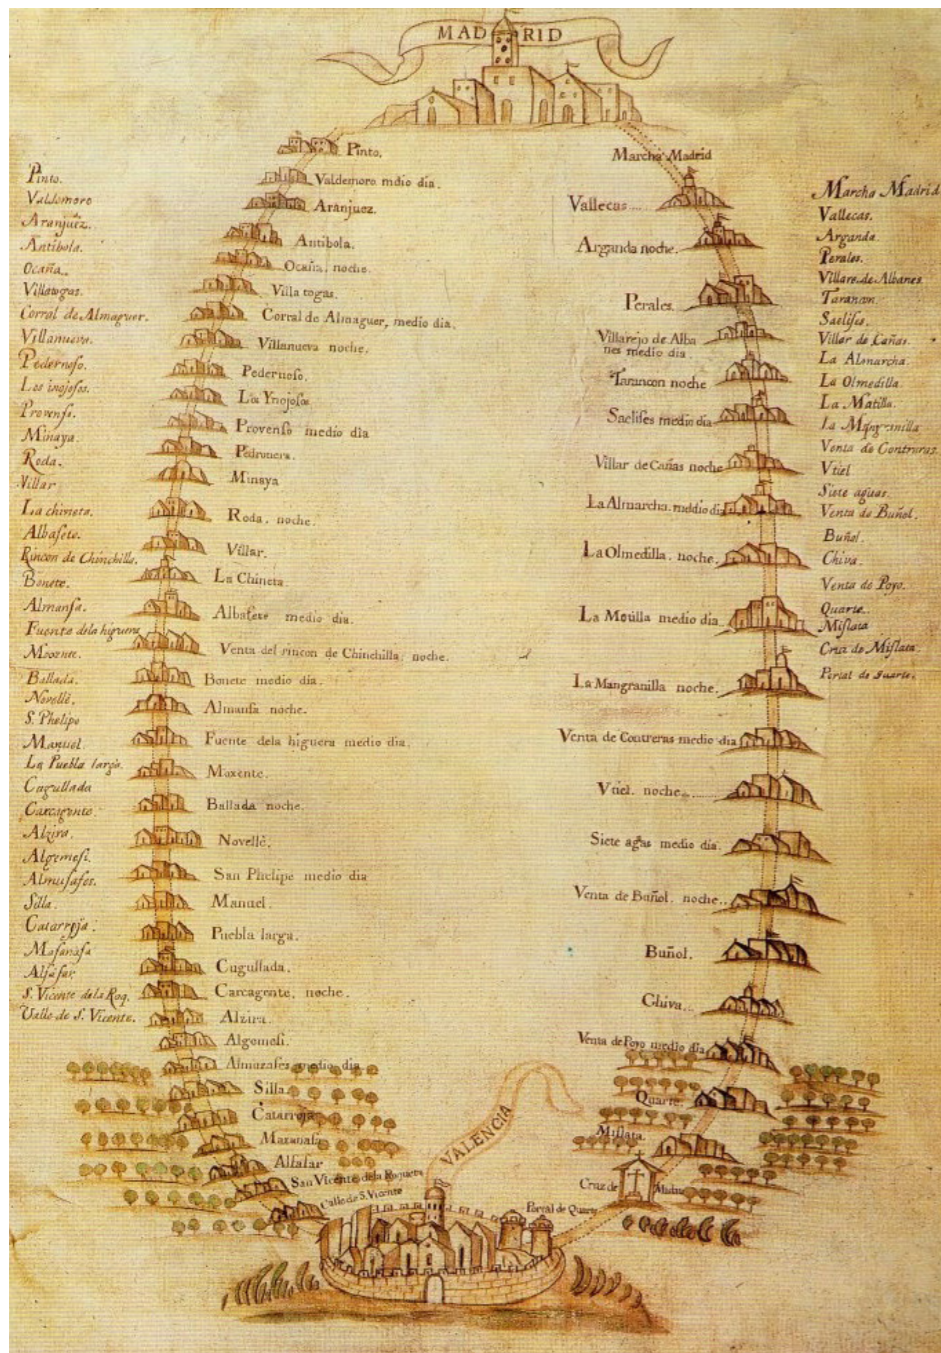 MADRID
Pinto.
Valdemoro
Aranjuez.
Antibola.
Ocaña.
Villatogas.
Corral de Almaguer.
Villanueva.
Pedernoso.
Los inojosos.
Provensio.
Minaya.
Roda.
Villar
La chineta.
Albasete.
Rincon de Chinchilla.
Bonete.
Almansa.
Fuente dela higuera
Moxente.
Ballada.
Novellè.
S. Phelipo
Manuel.
La Puebla larga.
Cugullada
Carcagente.
Alzira.
Algemesi.
Almusafes.
Silla.
Catarroja.
Masanasa
Alfafar.
S. Vicente de la Roq.
Calle de S. Vicente.
Pinto.
Valdemoro mdio dia.
Aranjuez.
Antibola.
Ocaña. noche.
Villa togas.
Corral de Almaguer, medio dia.
Villanueva noche.
Pedernoso.
Los Ynojosos
Provenso medio dia
Pedronera.
Minaya
Roda. noche.
Villar.
La Chineta.
Albasete medio dia.
Venta del rincon de Chinchilla: noche.
Bonete medio dia.
Almansa noche.
Fuente dela higuera medio dia.
Moxente.
Ballada noche.
Novellè.
San Phelipe medio dia
Manuel.
Puebla larga.
Cugullada.
Carcagente, noche.
Alzira.
Algemesi.
Almuzafes medio dia
Silla.
Catarroja
Masanasa
Alfafar
San Vicente dela Roqueta
Calle de S. Vicente
VALENCIA
Marcha Madrid
Vallecas
Arganda noche.
Perales.
Villarejo de Alba
nes medio dia
Tarancon noche
Saelises medio dia
Villar de Cañas noche
La Almarcha. meddio dia
La Olmedilla. noche.
La Motilla medio dia
La Mangranilla noche.
Venta de Contreras medio dia
Vtiel. noche
Siete agas medio dia.
Venta de Buñol. noche.
Buñol.
Chiva
Venta de Poyo medio dia
Quarte.
Mislata.
Cruz de
Portal de Quarte
Marcha Madrid
Vallecas.
Arganda.
Perales.
Villare. de Albanes
Tarancon.
Saelises.
Villar de Cañas.
La Almarcha.
La Olmedilla
La Matilla.
La Mangranilla
Venta de Contreras.
Vtiel
Siete aguas.
Venta de Buñol.
Buñol.
Chiva.
Venta de Poyo.
Quarte.
Mislata
Cruz de Mislata.
Portal de Quarte.